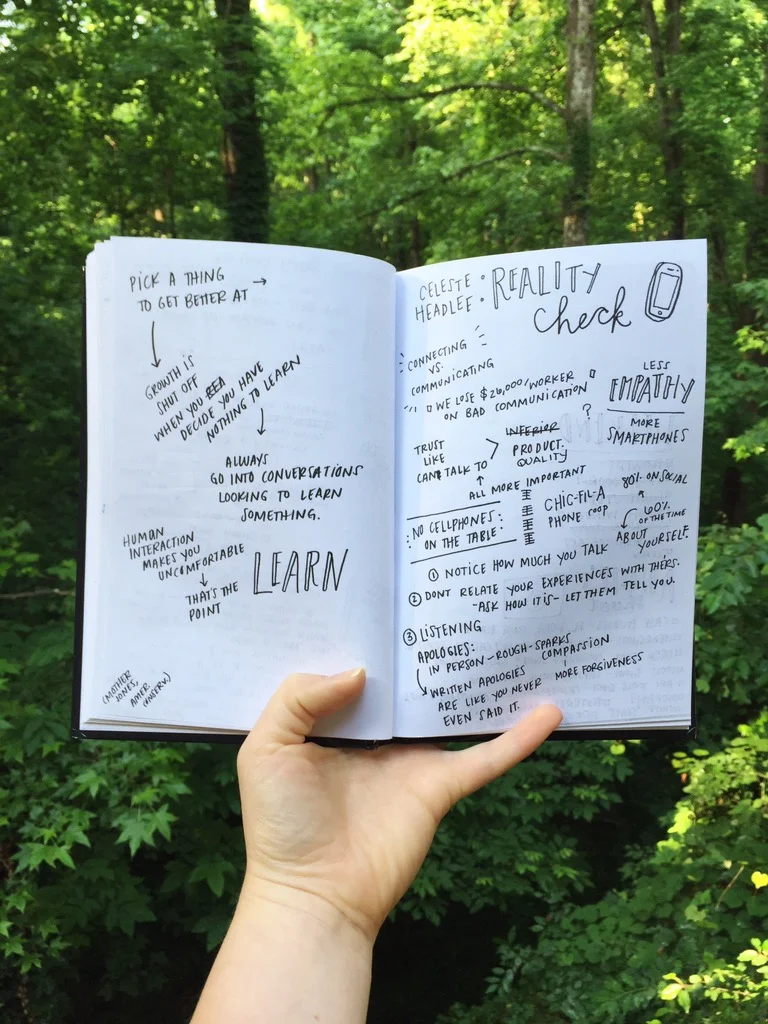 PICK A THING →
TO GET BETTER AT
GROWTH IS
SHUT OFF
WHEN YOU
DECIDE YOU HAVE
NOTHING TO LEARN
ALWAYS
GO INTO CONVERSATIONS
LOOKING TO LEARN
SOMETHING.
HUMAN
INTERACTION
MAKES YOU
UNCOMFORTABLE
THAT'S THE
POINT
LEARN
(MOTHER
JONES,
AMER.
CELESTE :
HEADLEE :
REALITY
Check
CONNECTING
VS.
COMMUNICATING
"WE LOSE $26,000/WORKER
ON BAD COMMUNICATION"
LESS
EMPATHY
MORE
SMARTPHONES
TRUST
LIKE
CANT TALK TO
>
INFERIOR ?
PRODUCT.
QUALITY
ALL MORE IMPORTANT
: NO CELLPHONES :
: ON THE TABLE :
CHIC-FIL-A
PHONE COOP
80% ON SOCIAL
60%
OF THE TIME
ABOUT
YOURSELF.
① NOTICE HOW MUCH YOU TALK
② DONT RELATE YOUR EXPERIENCES WITH THEIRS.
-ASK HOW IT IS- LET THEM TELL YOU.
③ LISTENING
APOLOGIES:
IN PERSON-ROUGH-SPARKS
COMPASSION
MORE FORGIVENESS
WRITTEN APOLOGIES
ARE LIKE YOU NEVER
EVEN SAID IT.